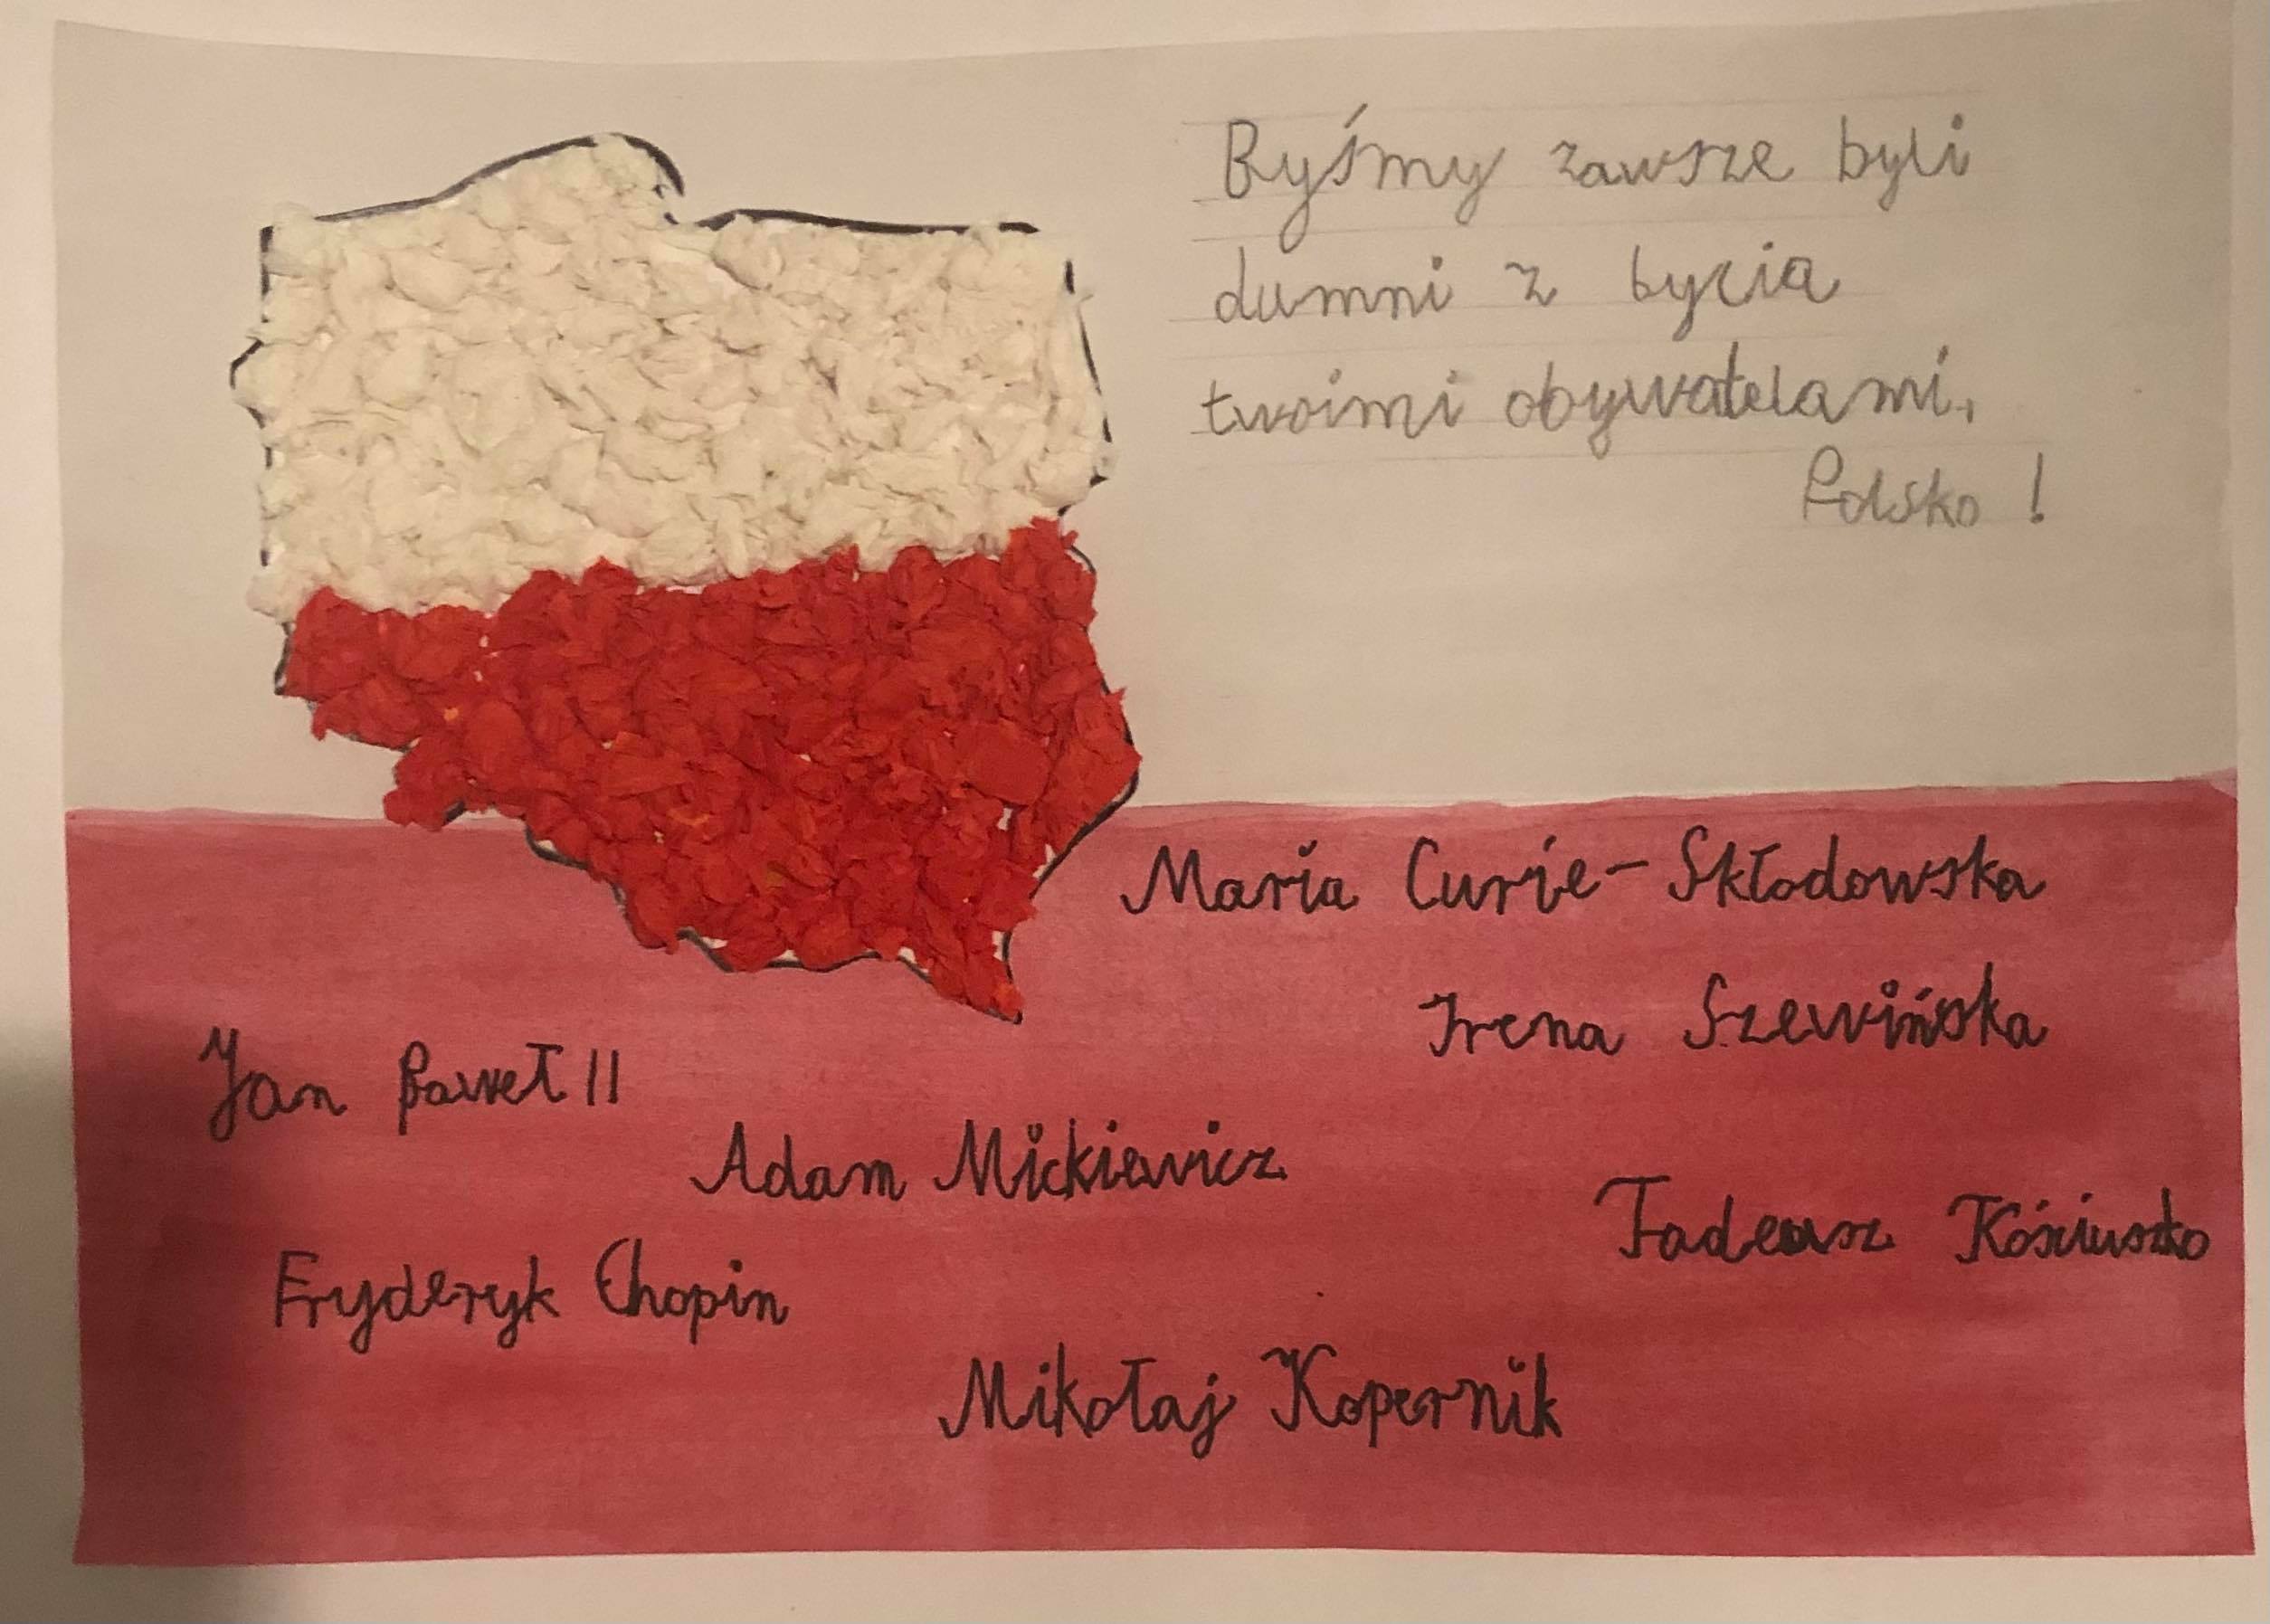 Byśmy zawsze byli
dumni z bycia
twoimi obywatelami,
Polsko !
Maria Curie-Skłodowska
Irena Szewińska
Jan Paweł II
Adam Mickiewicz
Tadeusz Kościuszko
Fryderyk Chopin
Mikołaj Kopernik